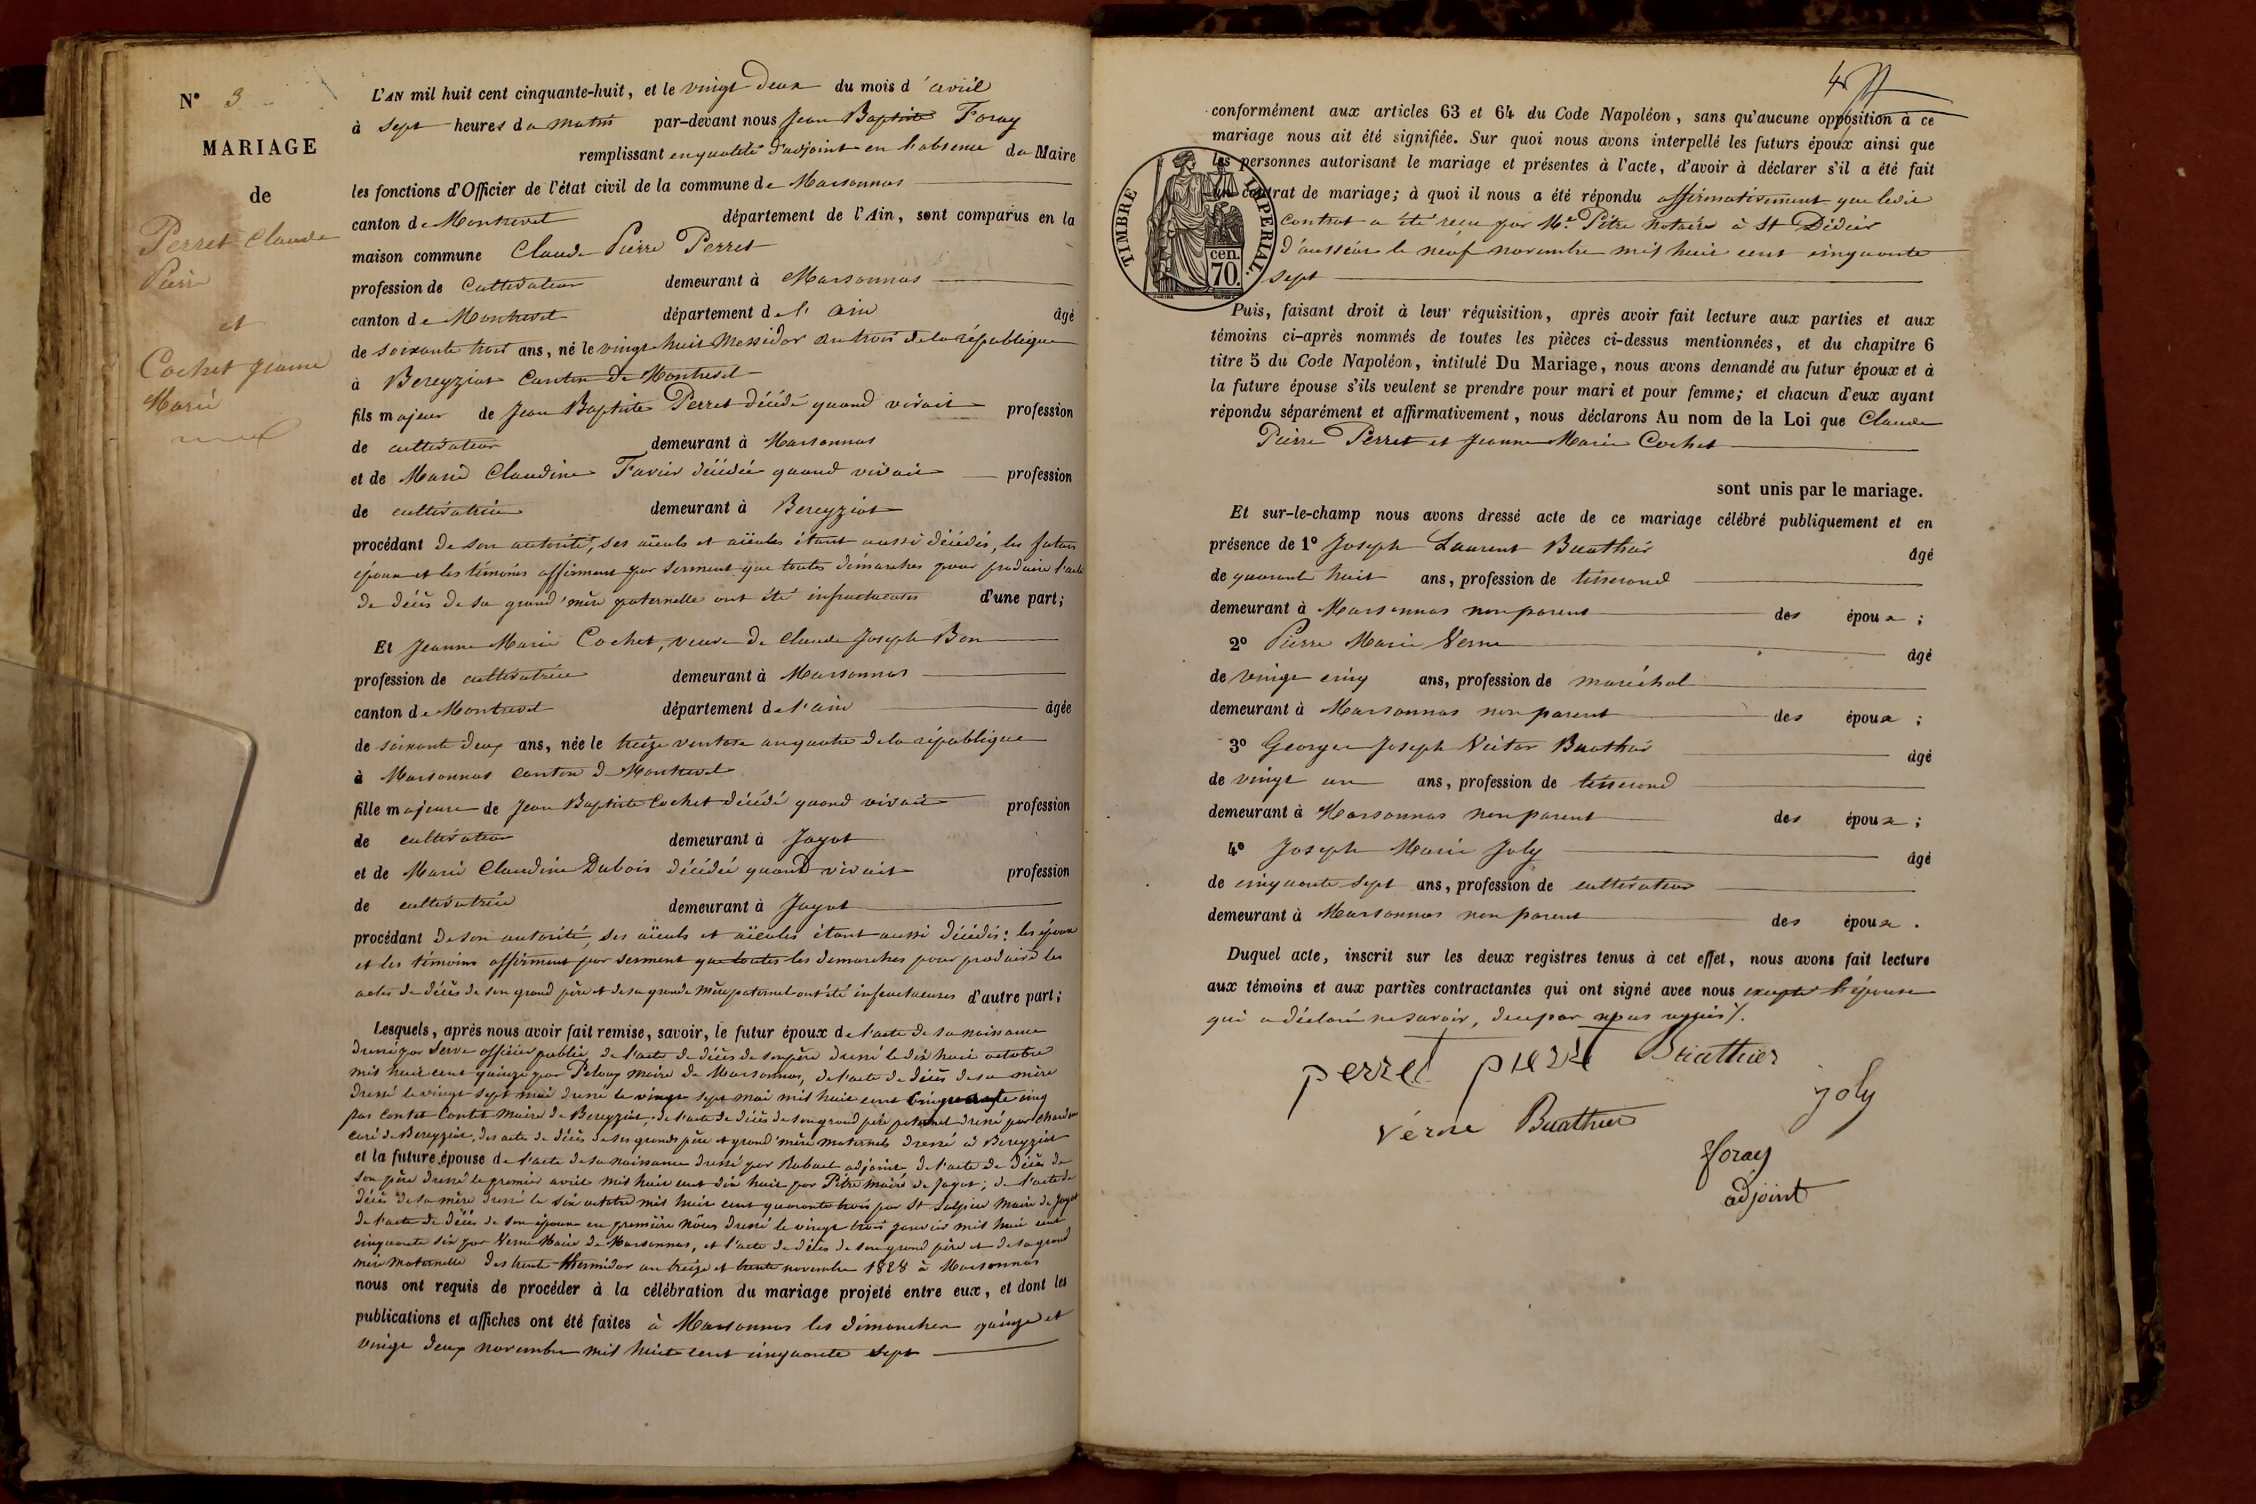 N° 3
MARIAGE
de
Perret Claude
Pierre
et
Cochet Jeanne
Marie
L'AN mil huit cent cinquante-huit, et le vingt deux du mois d'avril
à sept heures du matin par-devant nous Jean Baptiste Foray
remplissant en qualité d'adjoint en l'absence du Maire
les fonctions d'Officier de l'état civil de la commune de Marsonnas
canton de Montrevel département de l'Ain, sont comparus en la
maison commune Claude Pierre Perret
profession de cultivateur demeurant à Marsonnas
canton de Montrevel département de l'ain âgé
de soixante trois ans, né le vingt huit Messidor an trois de la république
à Bereyziat Canton de Montrevel
fils majeur de Jean Baptiste Perret décédé quand vivait profession
de cultivateur demeurant à Marsonnas
et de Marie Claudine Favier décédée quand vivait profession
de cultivatrice demeurant à Bereyziat
procédant de son autorité, ses aïeuls et aïeules étant aussi décédés, les futurs
époux et les témoins affirment par serment que toutes démarches pour produire l'acte
de décès de sa grand'mère paternelle ont été infructueuses d'une part;
Et Jeanne Marie Cochet, veuve de Claude Joseph Bon
profession de cultivatrice demeurant à Marsonnas
canton de Montrevel département de l'ain âgée
de soixante deux ans, née le treize ventose an quatre de la république
à Marsonnas canton de Montrevel
fille majeure de Jean Baptiste Cochet décédé quand vivait profession
de cultivateur demeurant à Jayat
et de Marie Claudine Dubois décédée quand vivait profession
de cultivatrice demeurant à Jayat
procédant de son autorité, ses aïeuls et aïeules étant aussi décédés: les époux
et les témoins affirment par serment que toutes les demarches pour produire les
actes de décès de son grand père et de sa grande mère paternel ont été infructueuses d'autre part;
Lesquels, après nous avoir fait remise, savoir, le futur époux de l'acte de sa naissance
dressé par Serve officier public, de l'acte de décès de son père dressé le dix huit octobre
mil huit cent quinze par Peloux maire de Marsonnas, de l'acte de décès de sa mère
dressé le vingt sept mai dressé le vingt sept mai mil huit cent cinquante cinq
par Contet Contet maire de Bereyziat, de l'acte de décès de son grand père paternel dressé par
curé de Bereyziat, des acte de décès de ses grands père et grand'mère maternels dressé à Bereyziat
et la future épouse de l'acte de sa naissance dressé par Rabuel adjoint, de l'acte de décès de
son père dressé le premier avril mil huit cent dix huit par Pitre maire de Jayat; de l'acte de
décès de sa mère dressé le six octobre mil huit cent quarante trois par St Sulpice Maire de Jayat
de l'acte de décès de son époux en première nôces dressé le vingt trois janvier mil huit cent
cinquante six par Verne Maire de Marsonnas, et l'acte de décès de son grand père et de sa grand
mère maternelle des trente thermidor an treize et trente novembre 1828 à Marsonnas
nous ont requis de procéder à la célébration du mariage projeté entre eux, et dont les
publications et affiches ont été faites à Marsonnas les dimanches quinze et
vingt deux novembre mil huit cent cinquante sept
conformément aux articles 63 et 64 du Code Napoléon, sans qu'aucune opposition à ce
mariage nous ait été signifiée. Sur quoi nous avons interpellé les futurs époux ainsi que
les personnes autorisant le mariage et présentes à l'acte, d'avoir à déclarer s'il a été fait
un contrat de mariage; à quoi il nous a été répondu affirmativement que ledit
contrat a été reçu par Me Pitre Notaire à St Didier
d'aussiat le neuf novembre mil huit cent cinquante
sept
TIMBRE IMPERIAL
cen. 70.
Puis, faisant droit à leur réquisition, après avoir fait lecture aux parties et aux
témoins ci-après nommés de toutes les pièces ci-dessus mentionnées, et du chapitre 6
titre 5 du Code Napoléon, intitulé Du Mariage, nous avons demandé au futur époux et à
la future épouse s'ils veulent se prendre pour mari et pour femme; et chacun d'eux ayant
répondu séparément et affirmativement, nous déclarons Au nom de la Loi que Claude
Pierre Perret et Jeanne Marie Cochet
sont unis par le mariage.
Et sur-le-champ nous avons dressé acte de ce mariage célébré publiquement et en
présence de 1° Joseph Laurent Buathier âgé
de quarante huit ans, profession de tisserand
demeurant à Marsonnas non parent des époux;
2° Pierre Marie Verne âgé
de vingt cinq ans, profession de maréchal
demeurant à Marsonnas non parent des époux;
3° George Joseph Victor Buathier âgé
de vingt un ans, profession de tisserand
demeurant à Marsonnas non parent des époux;
4° Joseph Marie Joly âgé
de cinquante sept ans, profession de cultivateur
demeurant à Marsonnas non parent des époux.
Duquel acte, inscrit sur les deux registres tenus à cet effet, nous avons fait lecture
aux témoins et aux parties contractantes qui ont signé avec nous excepté l'épouse
qui a déclaré ne savoir, de ce par nous requis.
perret pierre Buathier
joly
Verne Buathier
foray
adjoint